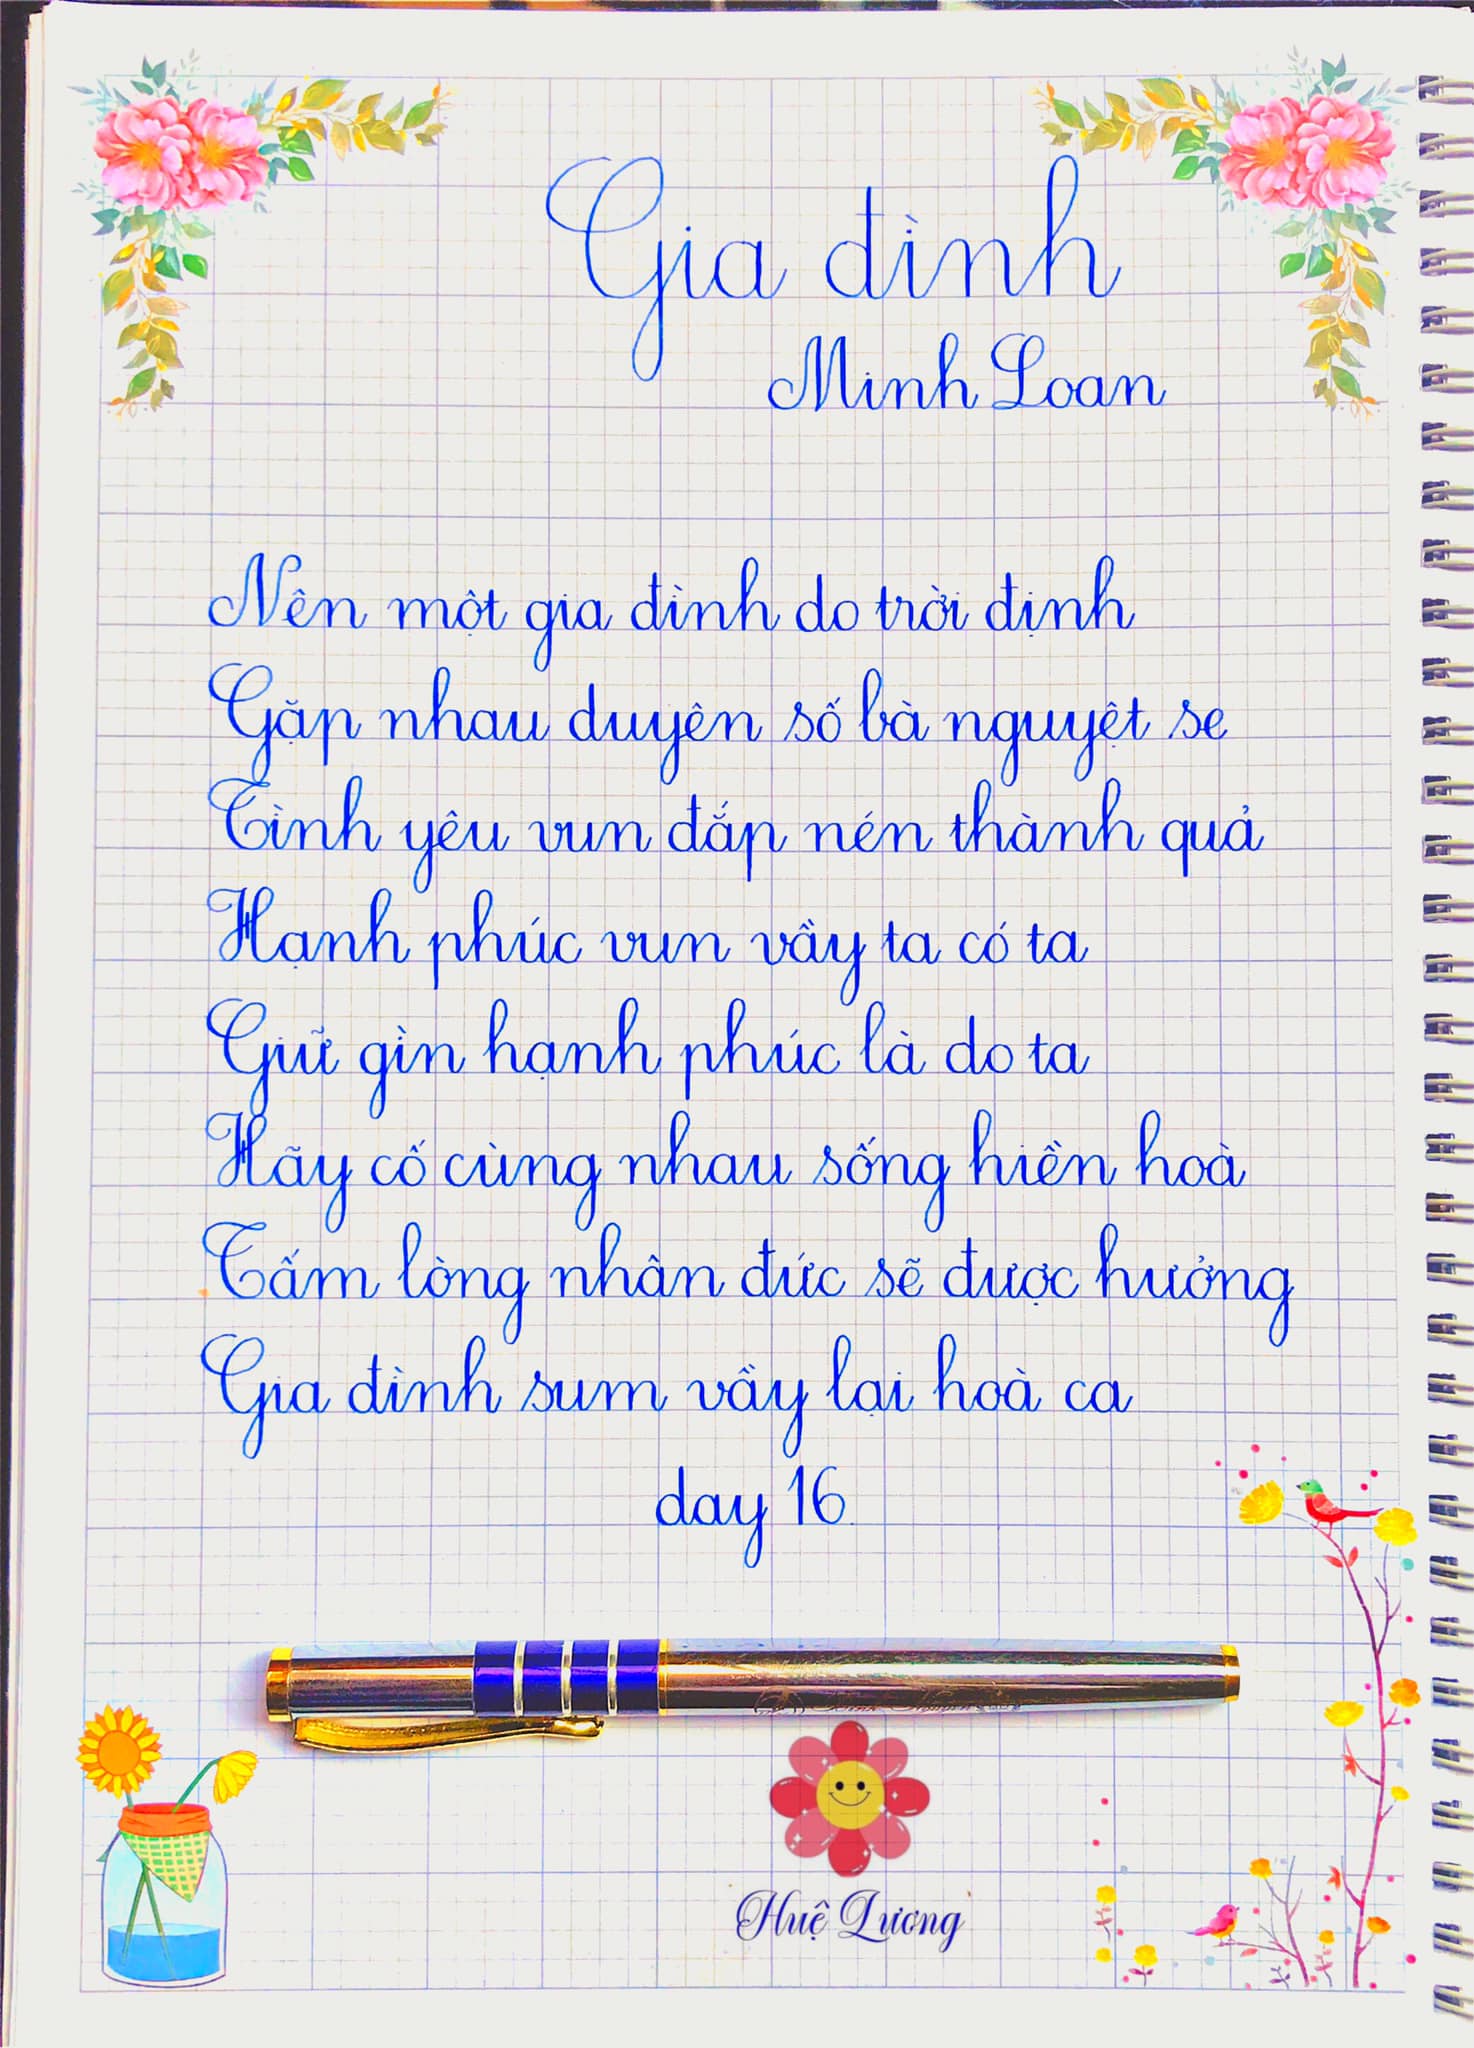 Gia đình
Minh Loan
Nên một gia đình do trời định
Gặp nhau duyên số bà nguyệt se
Tình yêu vun đắp nén thành quả
Hạnh phúc vun vầy ta có ta
Giữ gìn hạnh phúc là do ta
Hãy cố cùng nhau sống hiền hoà
Tấm lòng nhân đức sẽ được hưởng
Gia đình sum vầy lại hoà ca
day 16
Huệ Lương